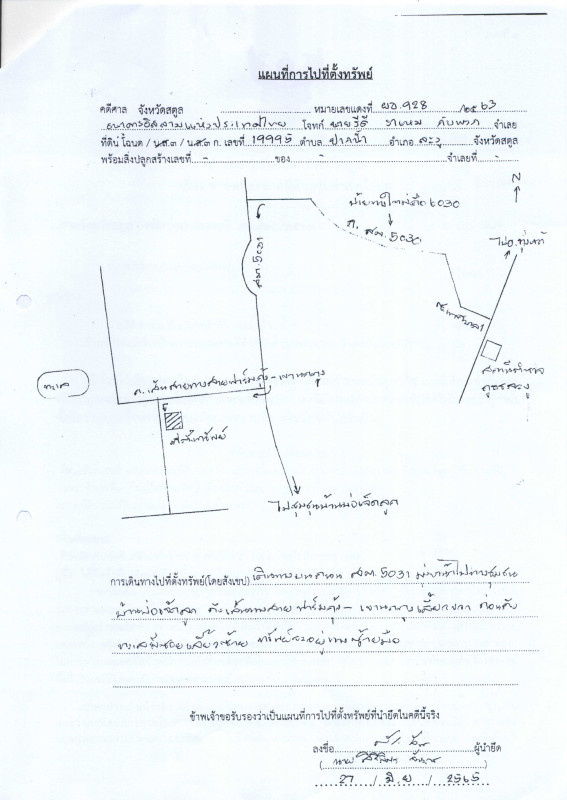 แผนที่การไปที่ตั้งทรัพย์
คดีศาล จังหวัดสตูล ........ หมายเลขแดงที่ ผบ.928 /2563
ธนาคารอิสลามแห่งประเทศไทย โจทก์ นายรีดี จำเลย
ที่ดิน โฉนด / น.ส.๓ / น.ส.๓ ก. เลขที่ 19995 ตำบล ปากน้ำ อำเภอ ละงู จังหวัดสตูล
พร้อมสิ่งปลูกสร้างเลขที่ - ของ - จำเลยที่ -
N
ป้ายทางใหญ่
ถ. สต. 5030
ไปอ.ทุ่งหว้า
สต. 5031
สถานีตำรวจ
ภูธรละงู
ทะเล
ถ. เส้นสายทางสายฟาร์มกุ้ง -
ที่ตั้งทรัพย์
ไปชุมชนบ้านบ่อเจ็ดลูก
การเดินทางไปที่ตั้งทรัพย์(โดยสังเขป) เดินทางบนถนน สต. 5031 มุ่งหน้าไปทางชุมชน
บ้านบ่อเจ็ดลูก ถึงเส้นทางสายฟาร์มกุ้ง - เลี้ยวขวา ก่อนถึง
ทะเล เลี้ยวซ้าย ทรัพย์จะอยู่ทางซ้ายมือ
ข้าพเจ้าขอรับรองว่าเป็นแผนที่การไปที่ตั้งทรัพย์ที่นำยึดในคดีนี้จริง
ลงชื่อ ผู้นำยึด
( นาย )
27 / มิ.ย / 2565